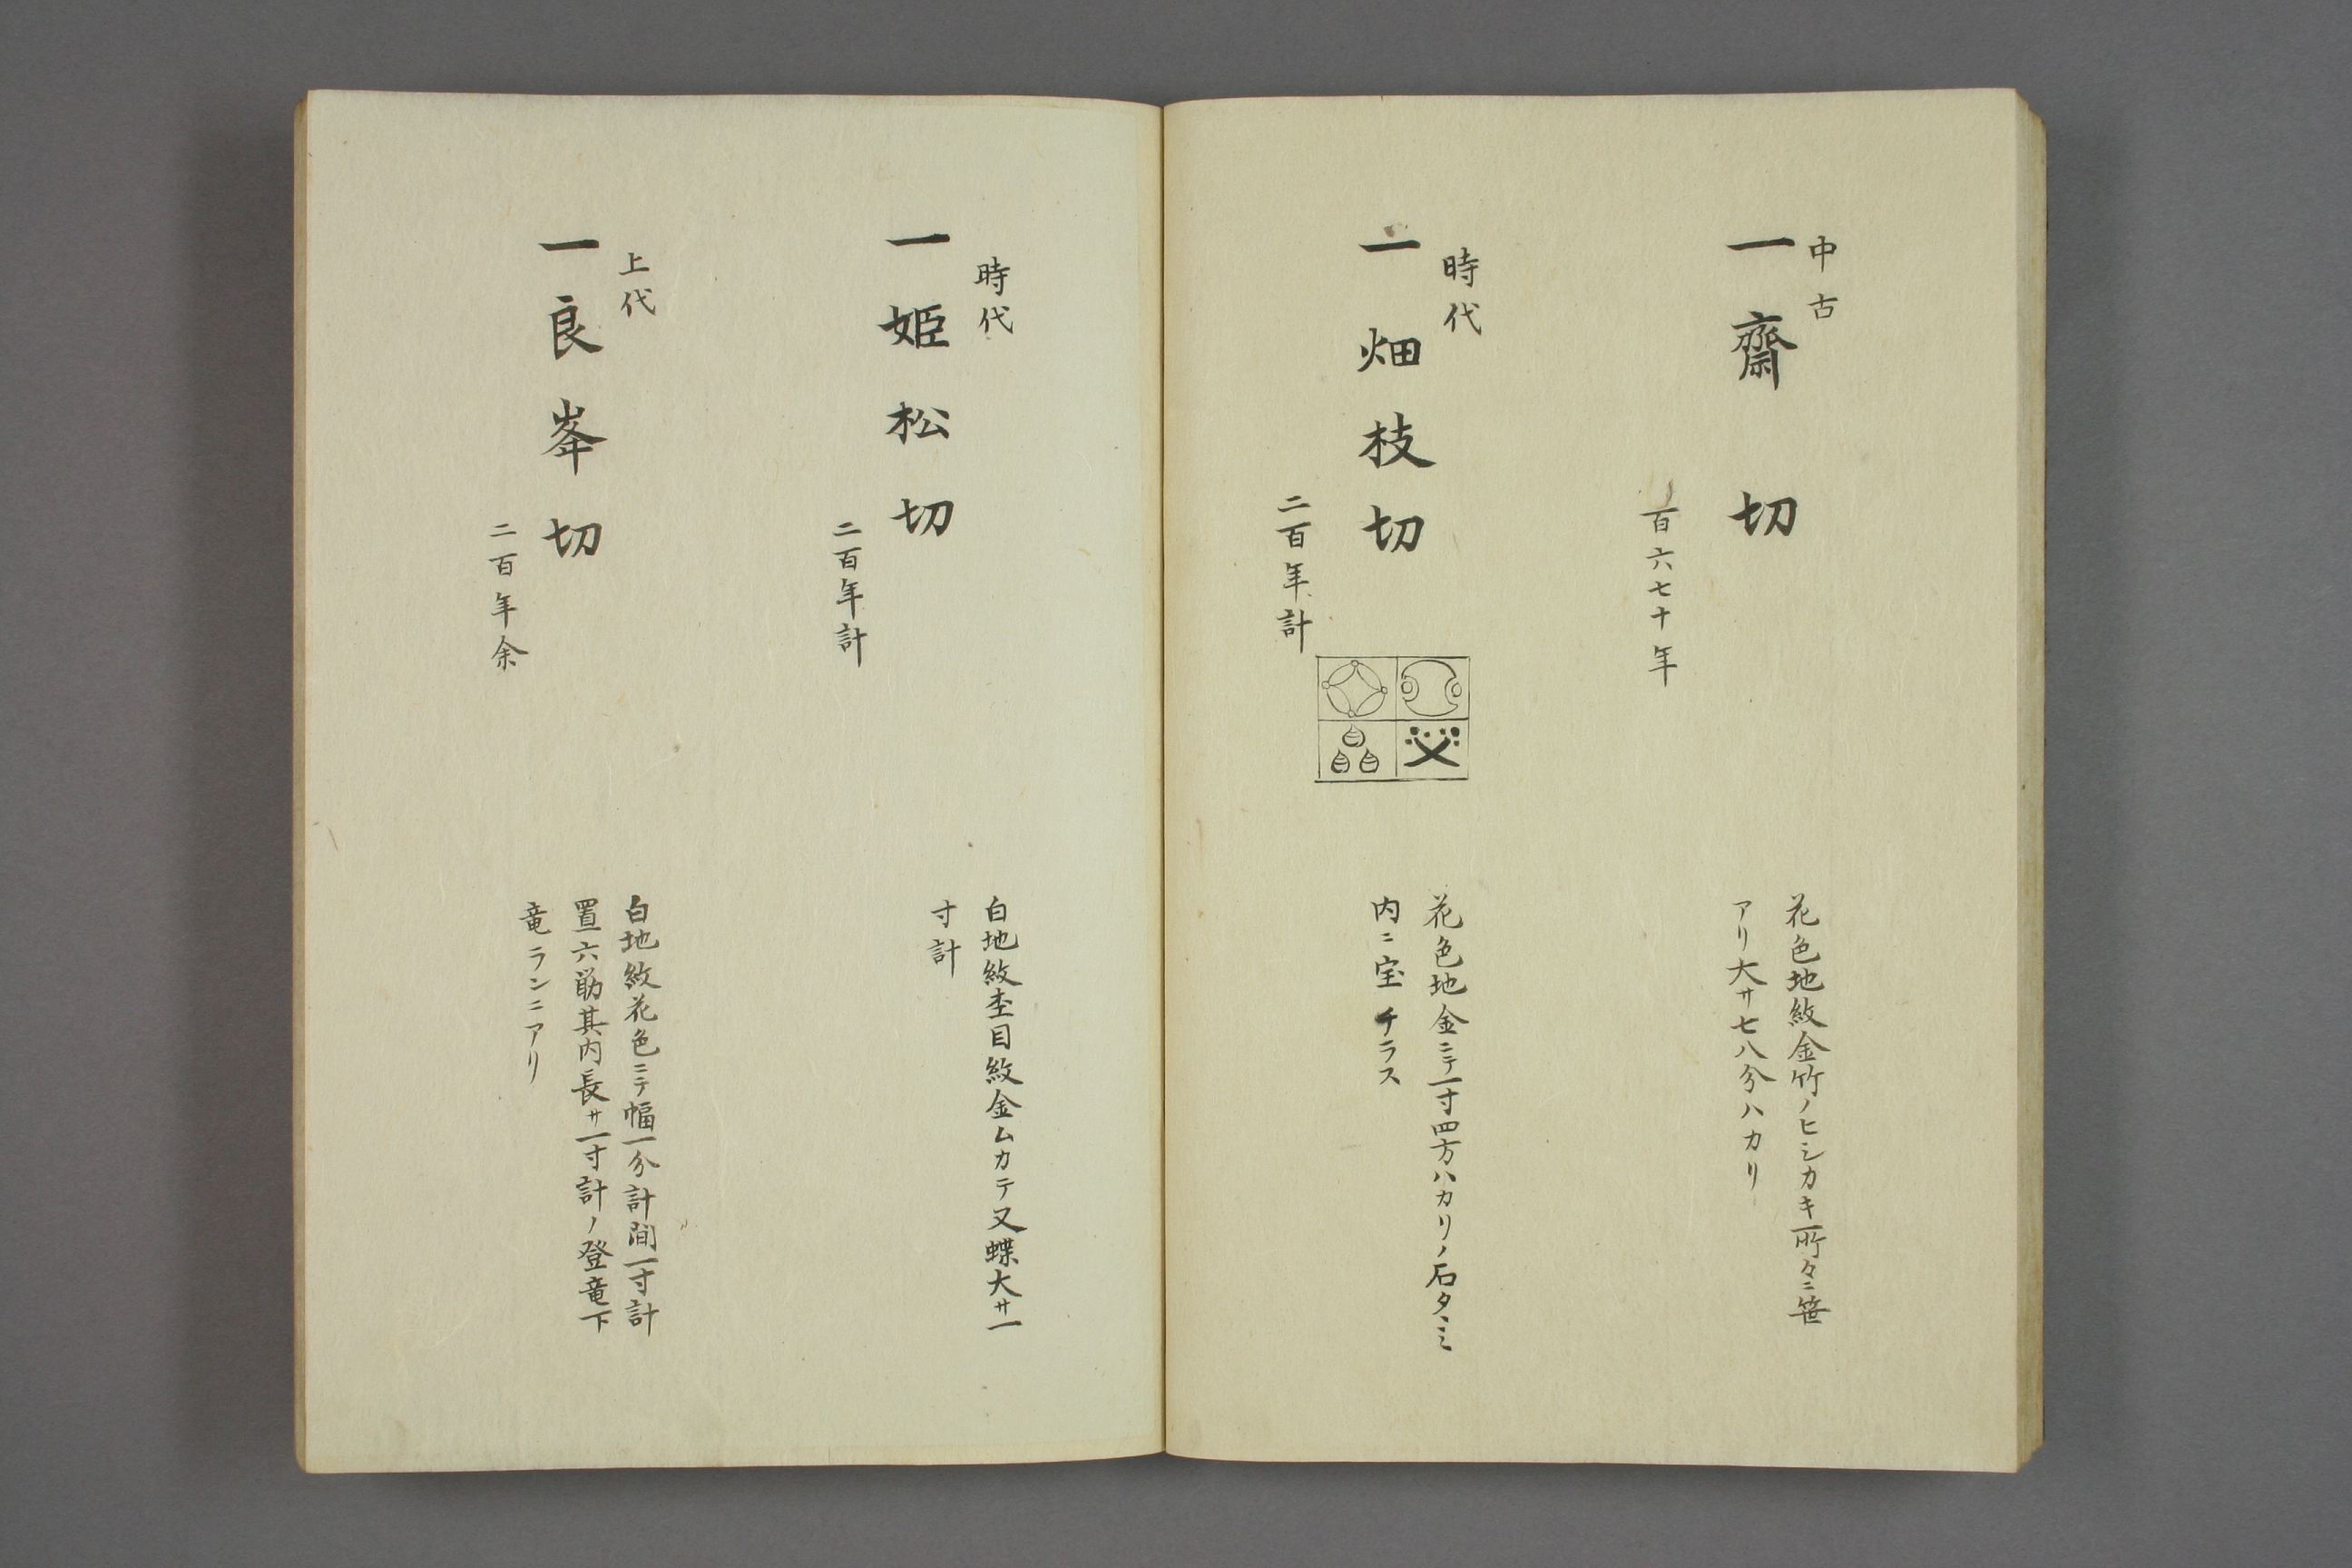 中古
一齋切
百六七十年
花色地紋金竹ノヒシカキ所々ニ笹
アリ大サ七八分ハカリ
時代
一畑枝切
二百年計
花色地金ニテ一寸四方ハカリノ石タヽミ
内ニ宝チラス
時代
一姫松切
二百年計
白地紋杢目紋金ムカテ又蝶大サ一
寸計
上代
一良峯切
二百年余
白地紋花色ニテ幅一分計間一寸計
置六筋其内長サ一寸計ノ登竜下
竜ランニアリ